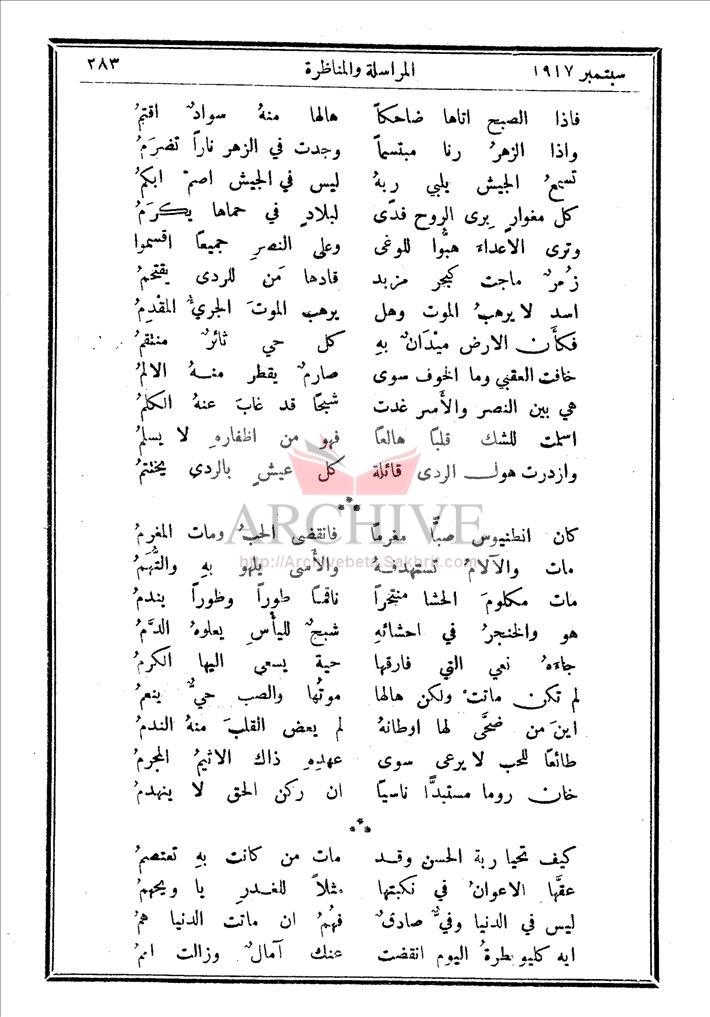 سبتمبر ١٩١٧ المراسلة والمناظرة ٢٨٣
فاذا الصبح اتاها ضاحكاً هالها منهُ سوادٌ اقتمُ
واذا الزهرُ رنا مبتسماً وجدت في الزهر ناراً تضرَمُ
تسمعُ الجيش يلبي ربهُ ليس في الجيش اصمْ ابكمُ
كل مغوارٍ يرى الروح فدًى لبلادٍ في حماها يكرَمُ
وترى الأعداءَ هبُّوا للوغى وعلى النصرِ جميعاً اقسموا
زُمرٌ ماجت كبحرٍ مزبد قادها مَن للردى يقتحمُ
اسد لا يرهبُ الموت وهل يرهب الموتَ الجريءُ المقدِمُ
فكأَن الارض ميْدَانٌ بهِ كل حي ثائرٌ منتقمُ
خافت العقبي وما الخوف سوى صارمٌ يقطر منــهُ الالمُ
هي بين النصر والأَسر غدت شبحًا قد غابَ عنهُ الكلمُ
اسلمت للشك قلبًا هالعًا فهو من اظفارهِ لا يسلمُ
وازدرت هول الردى قائلة كل عيشٍ بالردي يختتمُ
كان انطنيوس صبًّا مغرمًا فانقضى الحبُ ومات المغرمُ
مات والآلامُ تستهدفــهُ والأَسَى يلهو بهِ والتُّهَمُ
مات مكلومَ الحشا منتحراً ناقمًا طوراً وطوراً يندمُ
هو والخنجرُ في احشائهِ شبحٌ لليأسِ يعلوهُ الدَّمُ
جاءَهُ نعي التي فارقها حية يسعى اليها الكرمُ
لم تكن ماتتْ ولكن هالها موتُها والصب حيٌّ ينعمُ
اينَ من ضحَّى لها اوطانهُ لم يعض القلبَ منهُ الندمُ
طائعًا للحب لا يرعى سوى عهدهِ ذاك الاثيمُ المجرمُ
خان روما مستبدًّا ناسيًا ان ركن الحق لا ينهدمُ
كيف تحيا ربة الحسن وقــد مات من كانت بهِ تعتصمُ
عقَّها الاعوانُ في نكبتها مثلاً للغدرِ يا ويحهمُ
ليس في الدنيا وفيٌّ صادقٌ فهُمُ ان ماتت الدنيا همُ
ايه كليوبطرةُ اليوم انقضت عنك آمالٌ وزالت امُ
ARCHIVE
http://Archivebeta.Sakhrit.com